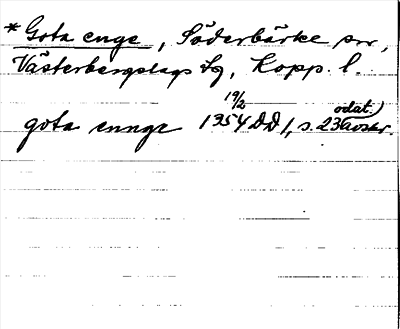 *Gota enge, Söderbärke sn,
Västerbergslags tg, Kopp. l.
gota ennge 19/2 1354 DD 1, s. 23 (odat.) avskr.